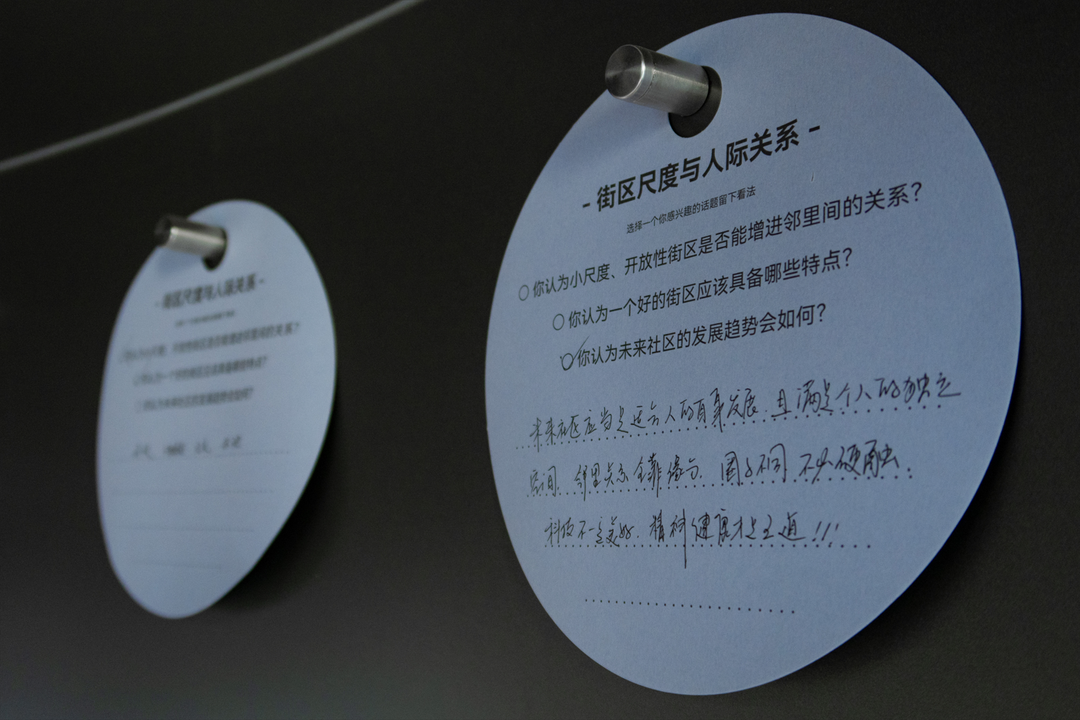 - 街区尺度与人际关系 -
选择一个你感兴趣的话题留下看法
○ 你认为小尺度、开放性街区是否能增进邻里间的关系？
○ 你认为一个好的街区应该具备哪些特点？
○ 你认为未来社区的发展趋势会如何？
未来社区应当是适合人的有序发展.且满足个人的独立
空间.邻里关系全靠缘分.圈子不同 不必硬融.
科技不一定美好.精神健康才是王道!!!
- 街区尺度与人际关系 -